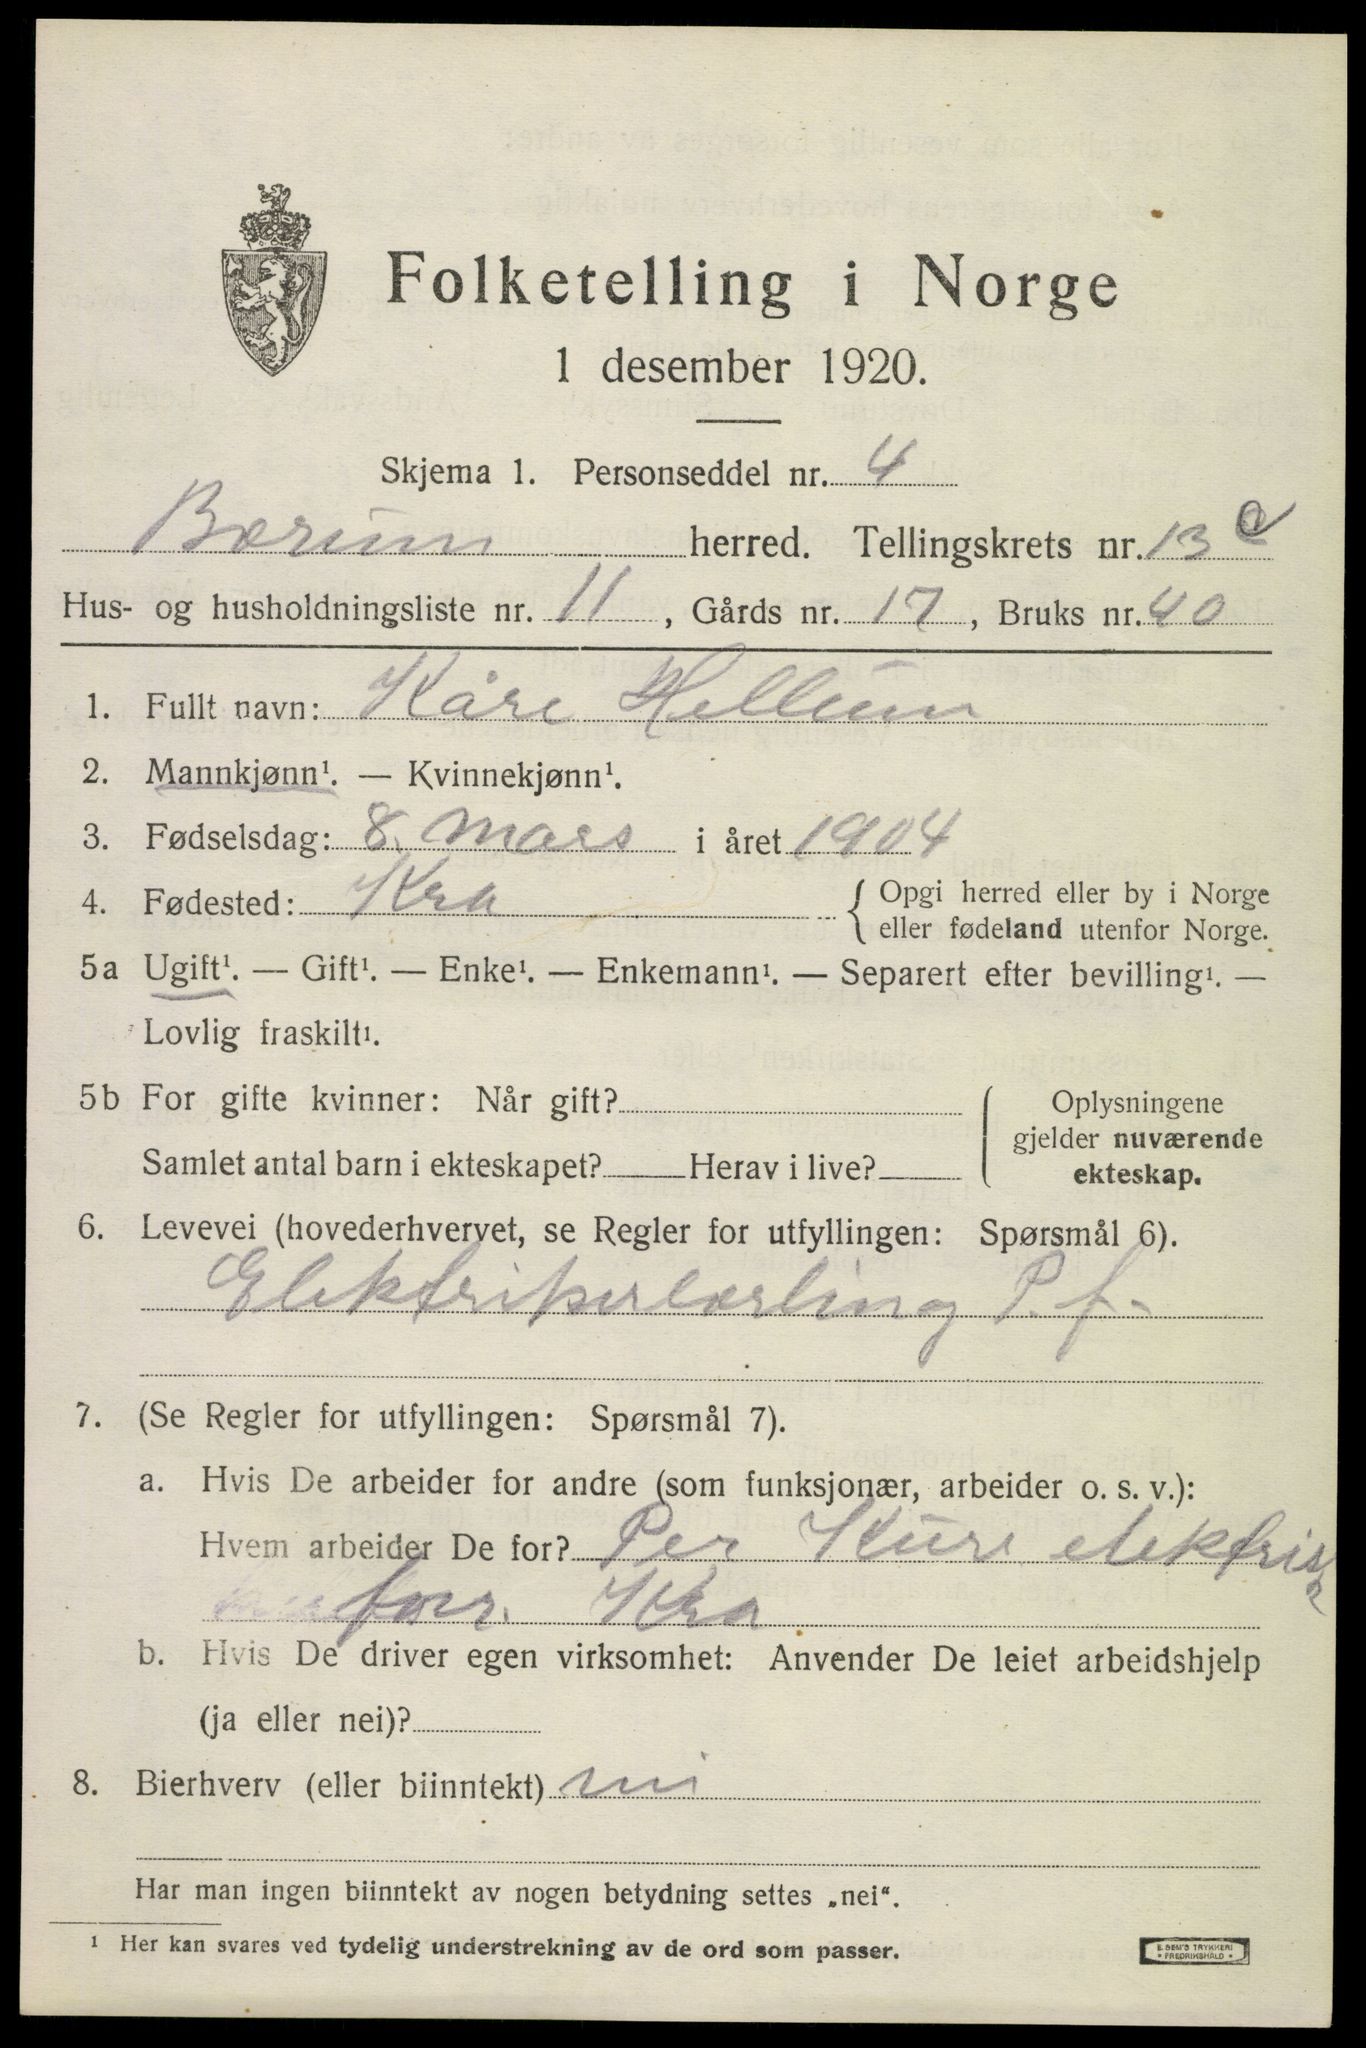 Folketelling i Norge
1 desember 1920.
Skjema 1. Personseddel nr. 4
Bærum herred. Tellingskrets nr. 13 c
Hus- og husholdningsliste nr. 11, Gårds nr. 17, Bruks nr. 40
1. Fullt navn: Kåre Hellum
2. Mannkjønn¹. — Kvinnekjønn¹.
3. Fødselsdag: 8. mars i året 1904
4. Fødested: Kra { Opgi herred eller by i Norge
eller fødeland utenfor Norge.
5a Ugift¹. — Gift¹. — Enke¹. — Enkemann¹. — Separert efter bevilling¹. —
Lovlig fraskilt¹.
5b For gifte kvinner: Når gift?
Samlet antal barn i ekteskapet? Herav i live?
Oplysningene
gjelder nuværende
ekteskap.
6. Levevei (hovederhvervet, se Regler for utfyllingen: Spørsmål 6).
Elektrikerlærling P. f.
7. (Se Regler for utfyllingen: Spørsmål 7).
a. Hvis De arbeider for andre (som funksjonær, arbeider o. s. v.):
Hvem arbeider De for? Per Kure elektrisk
forr. Kra
b. Hvis De driver egen virksomhet: Anvender De leiet arbeidshjelp
(ja eller nei)?
8. Bierhverv (eller biinntekt) nei
Har man ingen biinntekt av nogen betydning settes „nei“.
¹ Her kan svares ved tydelig understrekning av de ord som passer.
E. SEM'S TRYKKERI
* FREDRIKSHALD *